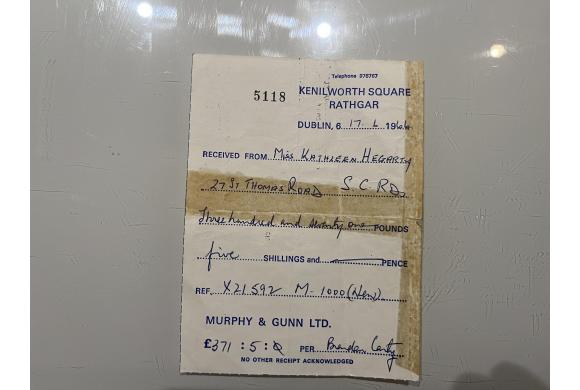 Telephone 976767
5118 KENILWORTH SQUARE
RATHGAR
DUBLIN, 6 17. 6. 1966
RECEIVED FROM Miss KATHLEEN HEGARTY
27 ST THOMAS ROAD S.C.RD.
Three hundred and seventy one POUNDS
five SHILLINGS and PENCE
REF. X21592 M-1000 (New)
MURPHY & GUNN LTD.
£371 : 5 : 0 PER Brendan
NO OTHER RECEIPT ACKNOWLEDGED